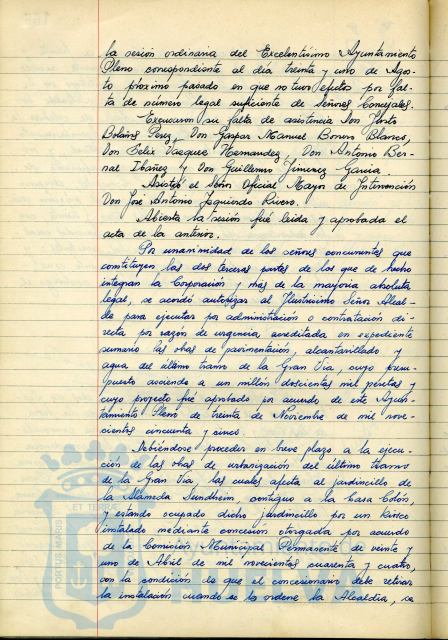 la sesión ordinaria del Excelentísimo Ayuntamiento
Pleno correspondiente al día treinta y uno de Agos-
to próximo pasado en que no tuvo efecto por fal-
ta de número legal suficiente de Señores Concejales.
Excusaron su falta de asistencia Don Justo
Bolaños Pérez, Don Gaspar Manuel Bonero Blanco,
Don Felix Vazquez Hernandez, Don Antonio Ber-
nal Ibañez y Don Guillermo Jimenez Garcia.
Asistió el Señor Oficial Mayor de Intervención
Don José Antonio Izquierdo Rivero.
Abierta la sesión fué leida y aprobada el
acta de la anterior.
Por unanimidad de los señores concurrentes que
constituyen las dos terceras partes de los que de hecho
integran la Corporación y más de la mayoria absoluta
legal, se acordó autorizar al Ilustrísimo Señor Alcal-
de para ejecutar por administración o contratación di-
recta por razón de urgencia acreditada en expediente
sumario las obras de pavimentación, alcantarillado y
agua del último tramo de la Gran Via, cuyo presu-
puesto asciende a un millón doscientas mil pesetas y
cuyo proyecto fué aprobado por acuerdo de este Ayun-
tamiento Pleno de treinta de Noviembre de mil nove-
cientos cincuenta y cinco.
Debiéndose proceder en breve plazo a la ejecu-
ción de las obras de urbanización del último tramo
de la Gran Via, las cuales afecta al jardincillo de
la Alameda Sundheim, contiguo a la Casa Colón
y estando ocupado dicho jardincillo por un Kiosco
instalado mediante concesión otorgada por acuerdo
de la Comisión Municipal Permanente de veinte y
uno de Abril de mil novecientos cuarenta y cuatro,
con la condición de que el concesionario debe retirar
la instalación cuando se lo ordene la Alcaldia, se
PORTUS MARIS
ET TERR